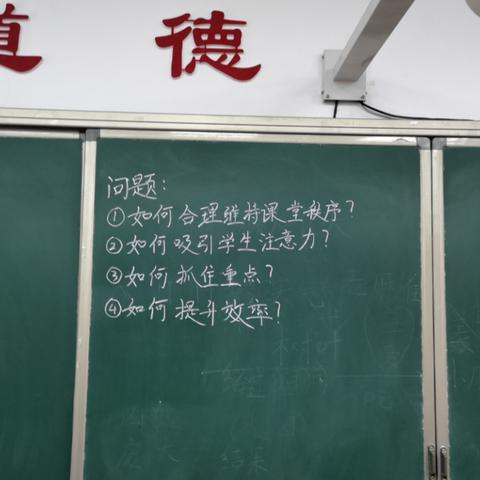 道 德
问题:
①如何合理维持课堂秩序?
②如何吸引学生注意力?
③如何抓住重点?
④如何提升效率?
树叶
结果